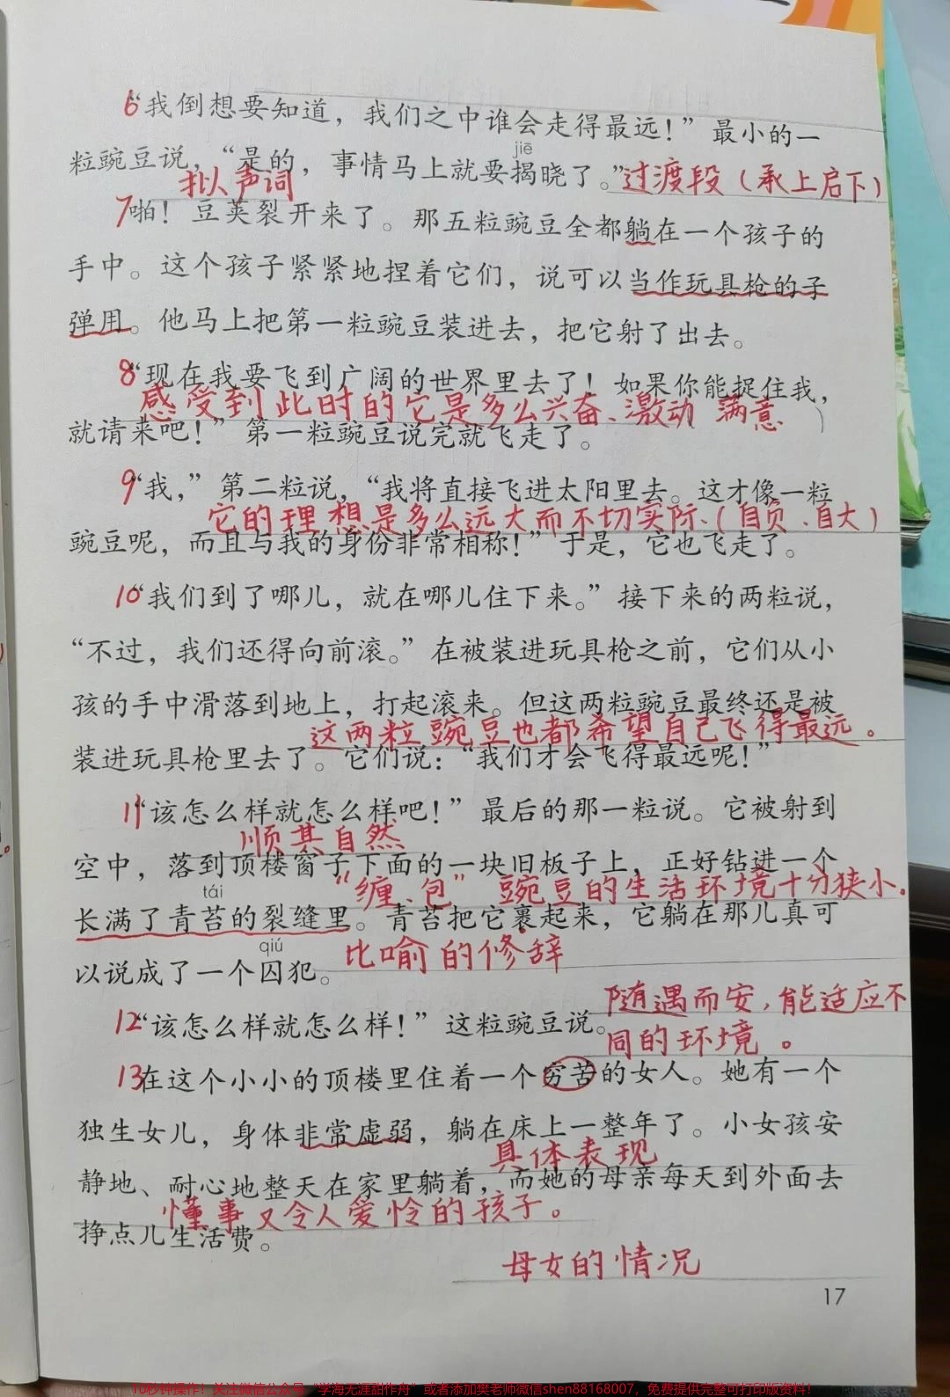 6“我倒想要知道，我们之中谁会走得最远！”最小的一
jiē
粒豌豆说，“是的，事情马上就要揭晓了。”过渡段（承上启下）
拟声词
7啪！豆荚裂开来了。那五粒豌豆全都躺在一个孩子的
手中。这个孩子紧紧地捏着它们，说可以当作玩具枪的子
弹用。他马上把第一粒豌豆装进去，把它射了出去。
8“现在我要飞到广阔的世界里去了！如果你能捉住我，
感受到此时的它是多么兴奋、激动 满意
就请来吧！”第一粒豌豆说完就飞走了。
9“我，”第二粒说，“我将直接飞进太阳里去。这才像一粒
它的理想是多么远大而不切实际、（自负、自大）
豌豆呢，而且与我的身份非常相称！”于是，它也飞走了。
10“我们到了哪儿，就在哪儿住下来。”接下来的两粒说，
“不过，我们还得向前滚。”在被装进玩具枪之前，它们从小
孩的手中滑落到地上，打起滚来。但这两粒豌豆最终还是被
这两粒豌豆也都希望自己飞得最远。
装进玩具枪里去了。它们说：“我们才会飞得最远呢！”
11“该怎么样就怎么样吧！”最后的那一粒说。它被射到
顺其自然
空中，落到顶楼窗子下面的一块旧板子上，正好钻进一个
“缠、包” 豌豆的生活环境十分狭小。
tái
长满了青苔的裂缝里。青苔把它裹起来，它躺在那儿真可
qiú
比喻的修辞
以说成了一个囚犯。
12“该怎么样就怎么样！”这粒豌豆说。
随遇而安，能适应不
同的环境。
13在这个小小的顶楼里住着一个穷苦的女人。她有一个
独生女儿，身体非常虚弱，躺在床上一整年了。小女孩安
具体表现
静地、耐心地整天在家里躺着，而她的母亲每天到外面去
懂事又令人爱怜的孩子。
挣点儿生活费。
母女的情况
17
10秒钟操作！关注微信公众号“学海无涯甜作舟”或者添加樊老师微信shen88168007，免费提供完整可打印版资料！